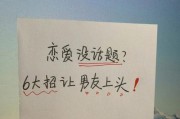 恋爱没话题？
6大招让男友上头！